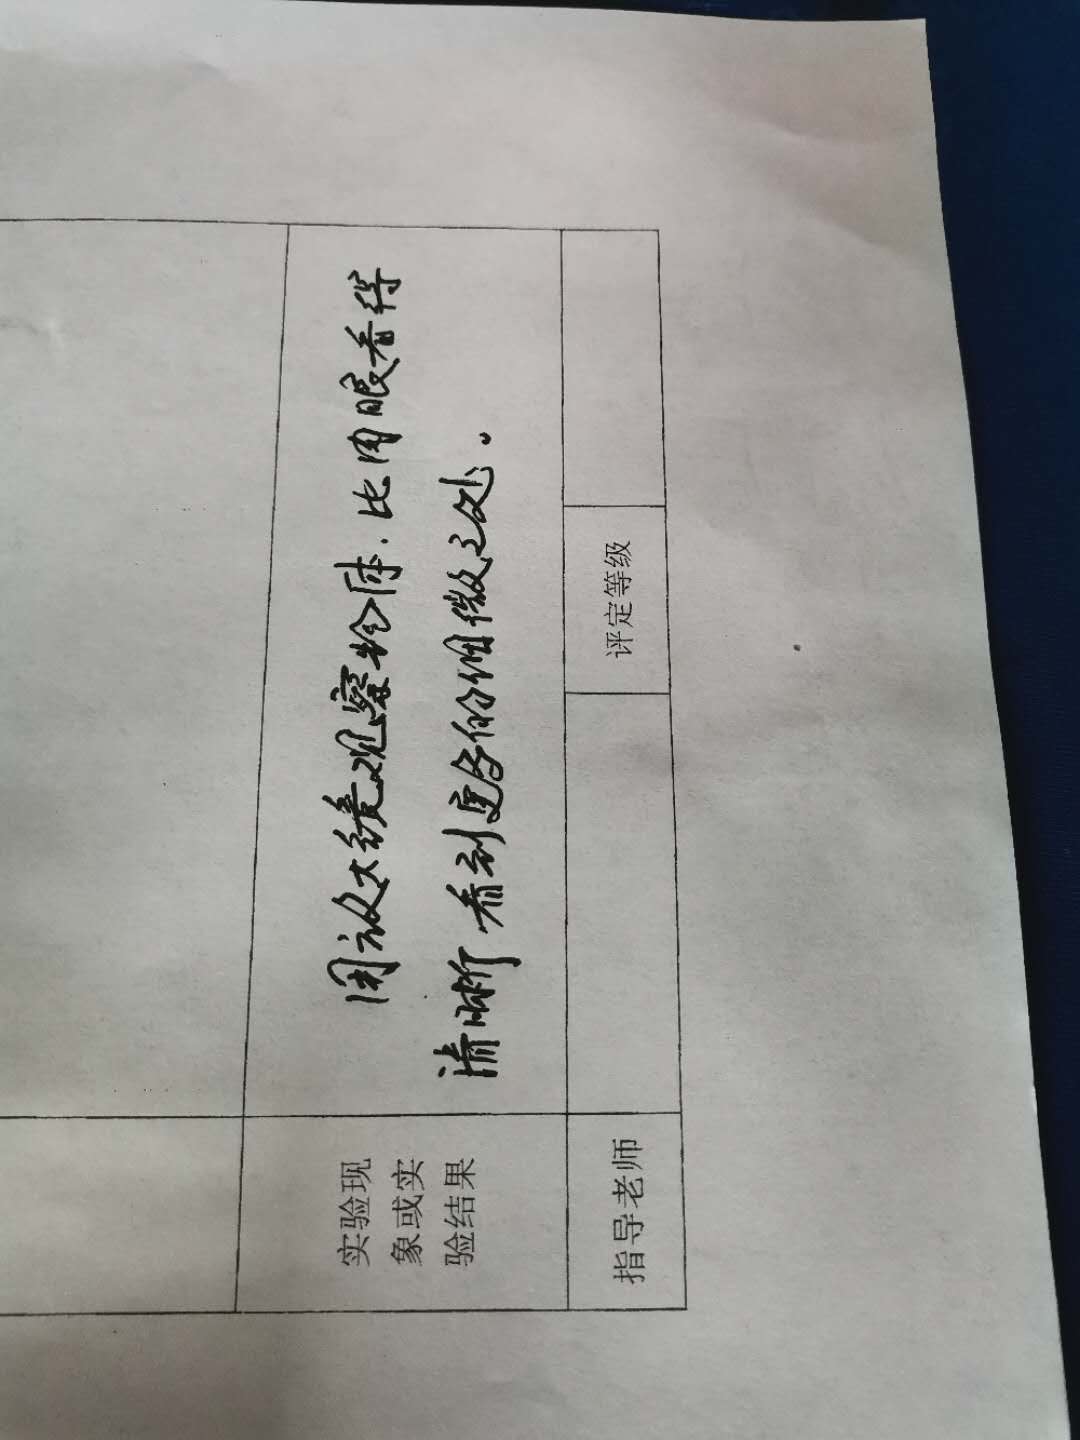 实验现
象或实
验结果
用放大镜观察物体，比肉眼看得
清晰，看到更多的细微之处。
指导老师
评定等级